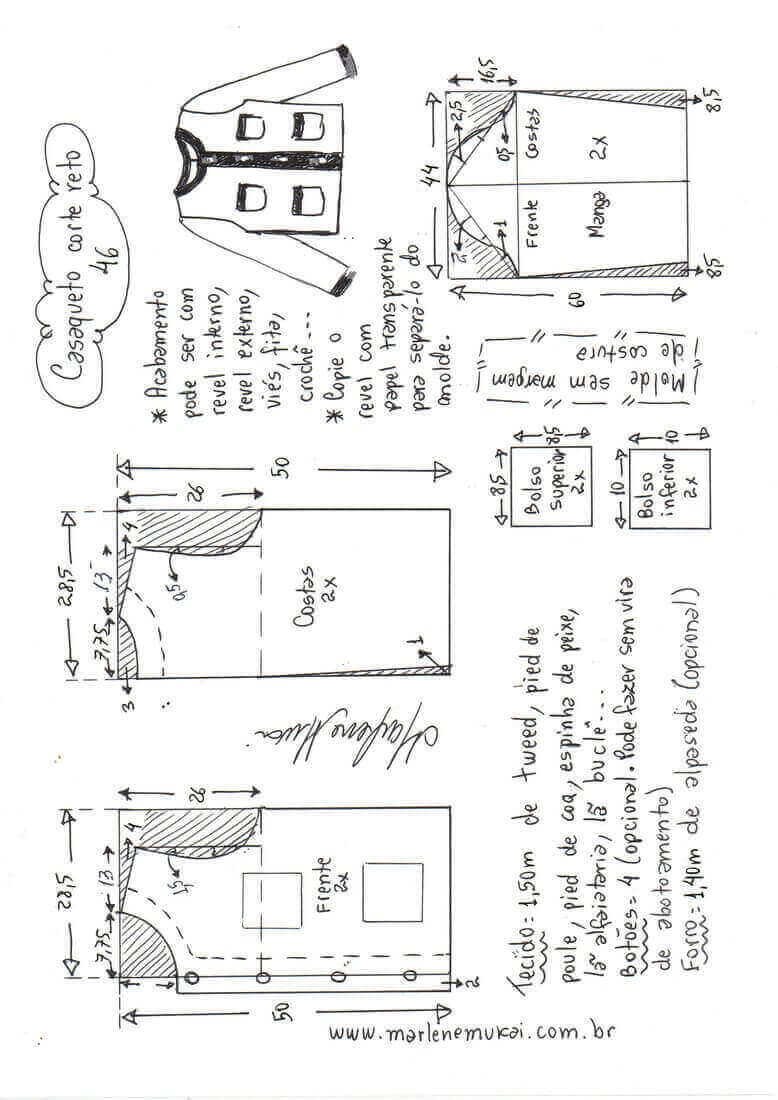 Casaqueto corte reto
46
* Acabamento
pode ser com
revel interno,
revel externo,
viés, fita,
crochê...
* Copie o
revel com
papel transparente
para separá-lo do
molde.
44
16,5
2,5
0,5
2
1
Costas
2x
Frente
Manga
8,5
8,5
60
Molde sem margem
de costura
28,5
7,75
13
4
26
50
3
0,5
Costas
2x
1
8,5
8,5
Bolso
superior
2x
10
10
Bolso
inferior
2x
28,5
7,75
13
4
26
1,5
Frente
2x
50
2
Marlene Mukai
www.marlenemukai.com.br
Tecido = 1,50m de tweed, pied de
poule, pied de coq, espinha de peixe,
lã alfaiataria, lã buclê...
Botões = 4 (opcional. Pode fazer sem vira
de abotoamento)
Forro = 1,40m de alpaseda (opcional)